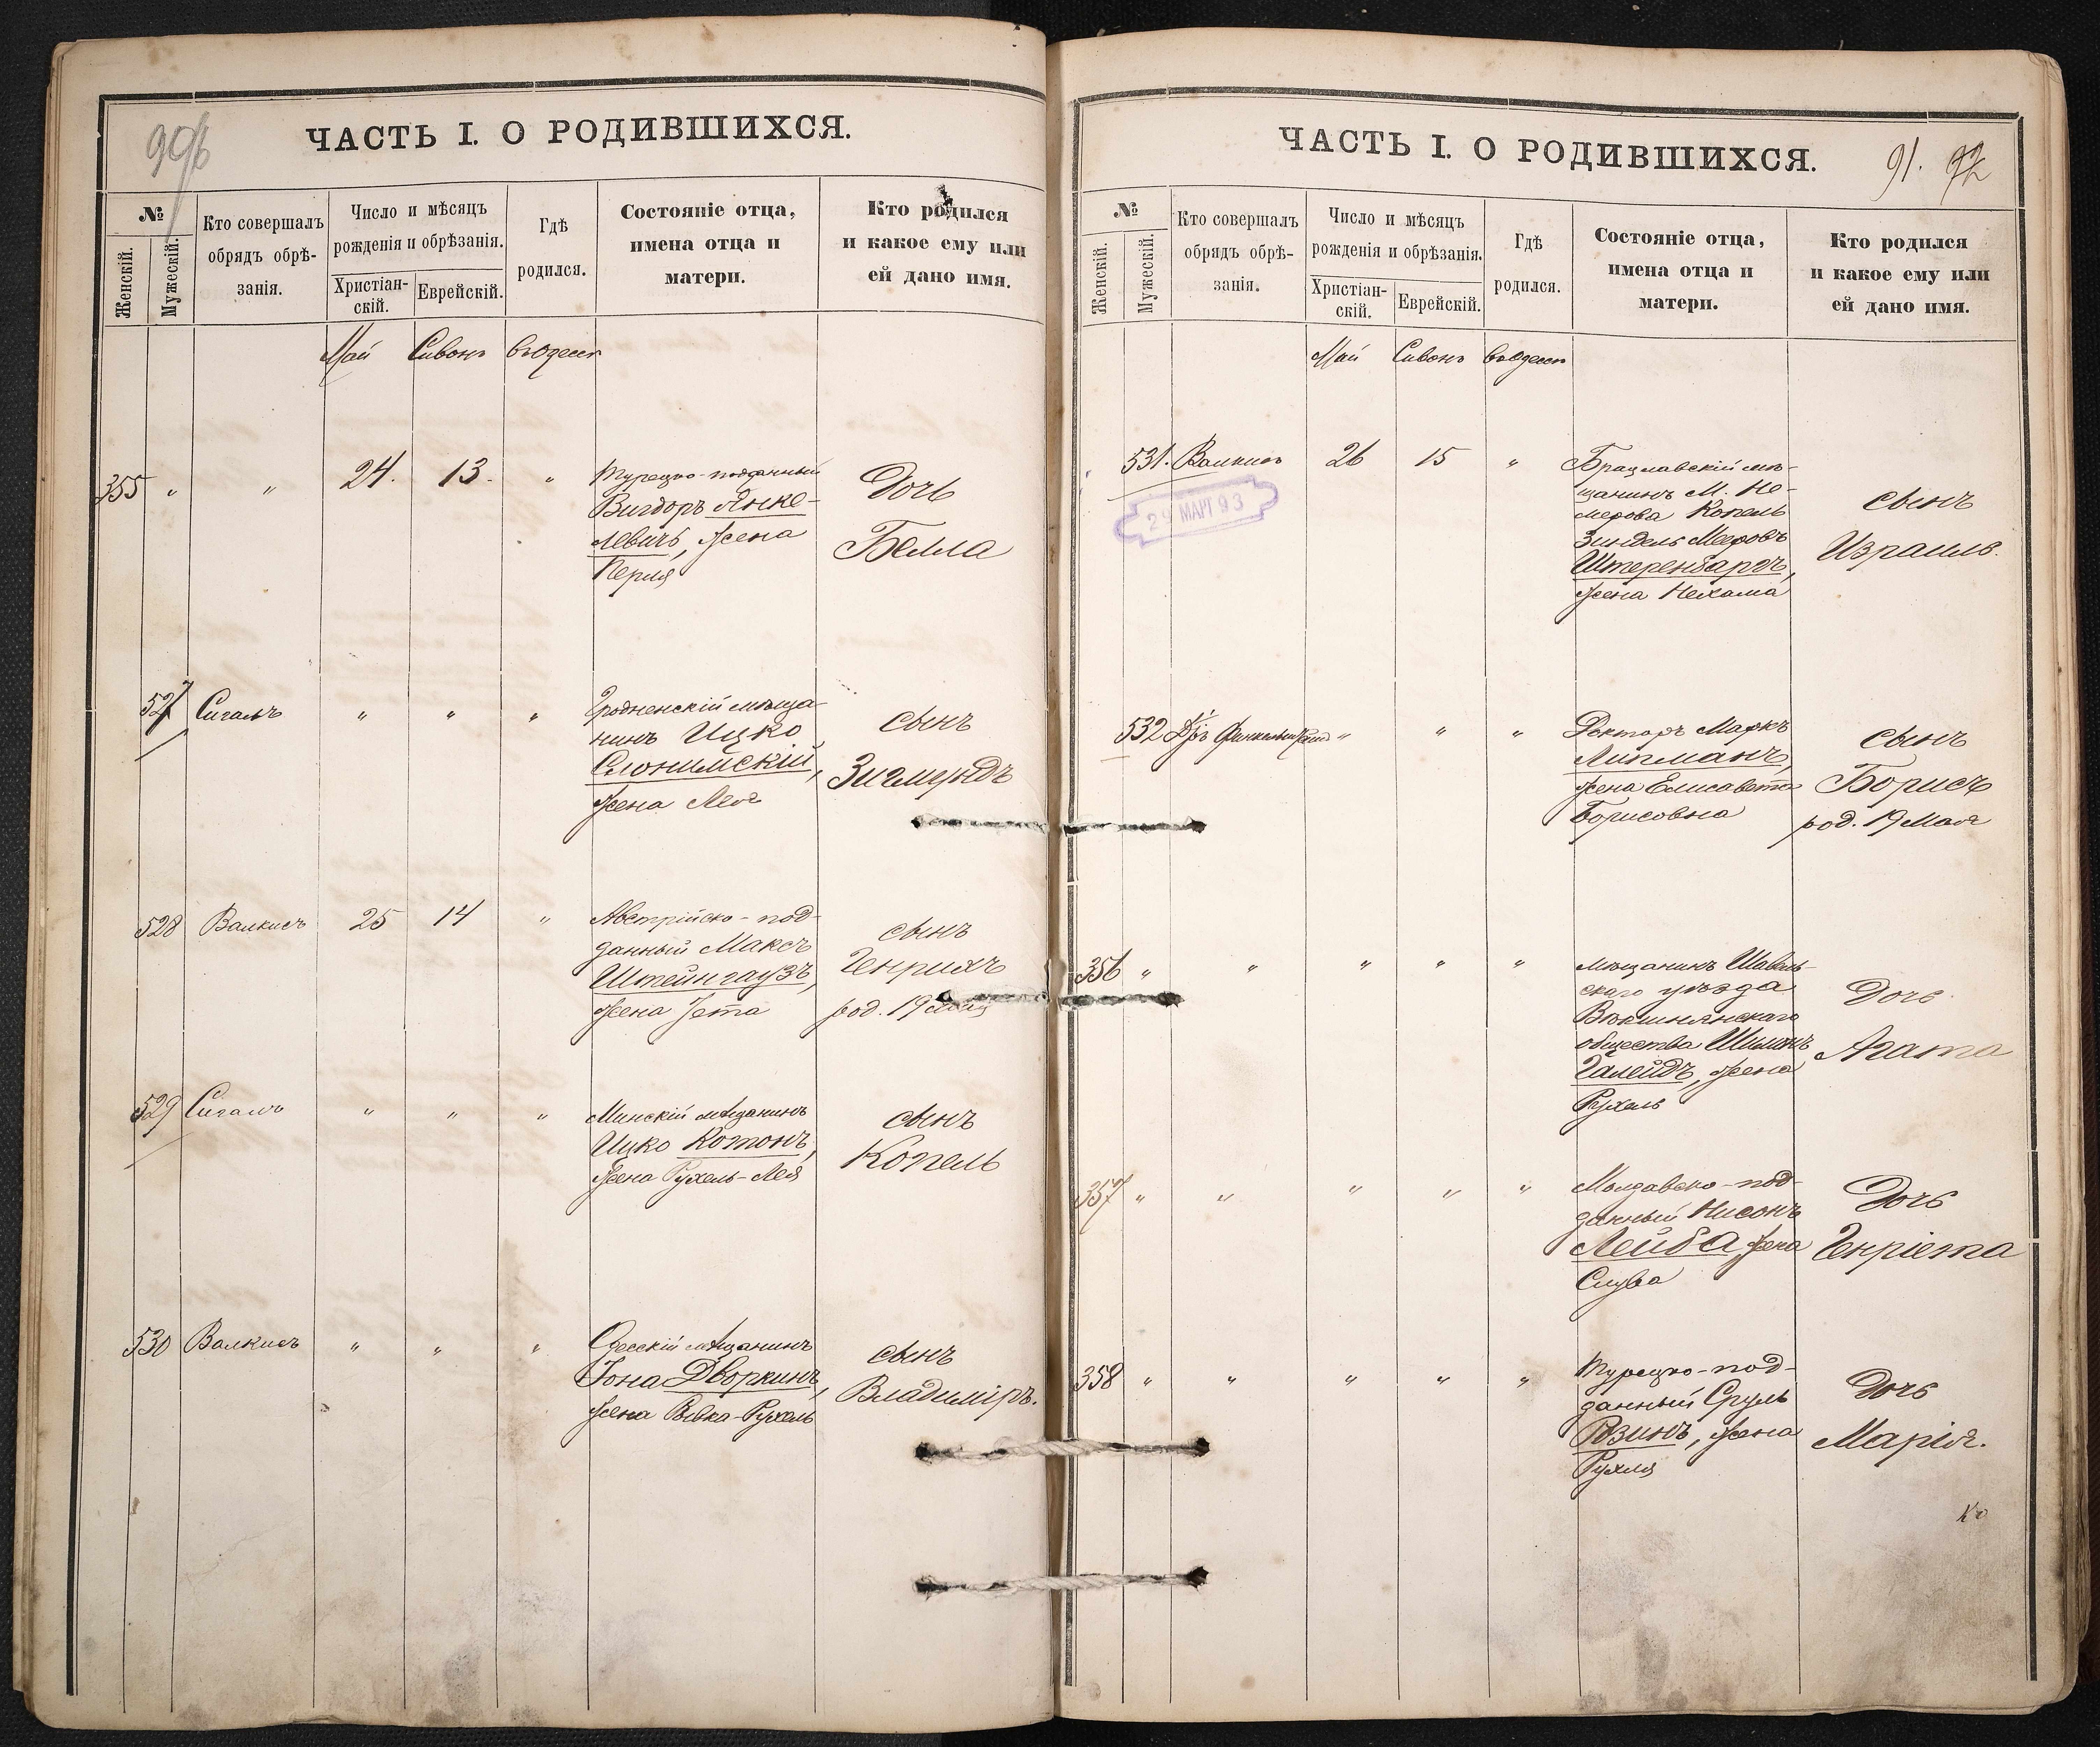 ЧАСТЬ I. О РОДИВШИХСЯ.
№
Женскій.
Мужескій.
Кто совершалъ
обрядъ обрѣ-
занія.
Число и мѣсяцъ
рожденія и обрѣзанія.
Христіан-
скій.
Еврейскій.
Гдѣ
родился.
Состояніе отца,
имена отца и
матери.
Кто родился
и какое ему или
ей дано имя.
Май Сивонъ въ Одессѣ
355 " " 24. 13. "
Турецко-подданный
Вигдоръ Янке-
левичъ, жена
Перля
Дочь
Белла
527 Сигалъ " " "
Гродненскій мѣща-
нинъ Ицко
Слонимскій,
жена Лея
сынъ
Зигмундъ
528 Валкисъ 25 14 "
Австрійско-под-
данный Максъ
Штейнгаузъ,
жена Іета
сынъ
Генрихъ
род. 19 мая
529 Сигалъ " " "
Минскій мѣщанинъ
Ицко Котонъ,
жена Рухель-Лея
сынъ
Копель
530 Валкисъ " " "
Одесскій мѣщанинъ
Іона Дворкинъ,
жена Ривка-Рухель
сынъ
Владиміръ.
ЧАСТЬ I. О РОДИВШИХСЯ.
91. 92
№
Женскій.
Мужескій.
Кто совершалъ
обрядъ обрѣ-
занія.
Число и мѣсяцъ
рожденія и обрѣзанія.
Христіан-
скій.
Еврейскій.
Гдѣ
родился.
Состояніе отца,
имена отца и
матери.
Кто родился
и какое ему или
ей дано имя.
Май Сивонъ въ Одессѣ
531. Валкисъ 26 15 "
29 МАРТ 93
Брацлавскій мѣ-
щанинъ М. Не-
мерова Копель
Зиндель Мееровъ
Штеренбаргъ,
жена Нехама
сынъ
Израиль.
532 Д-ръ " " "
Докторъ Маркъ
Липманъ,
жена Елисавета
Борисовна
сынъ
Борисъ
род. 19 Мая
356 " " " " "
мѣщанинъ Шавель-
скаго уѣзда
Векшнянскаго
общества Шимонъ
Галейдъ, жена
Рухель
Дочь
Агата
357 " " " " "
Молдавско-под-
данный Нисонъ
Лейба, жена
Слува
Дочь
Генріета
358 " " " " "
Турецко-под-
данный Сруль
Розинъ, жена
Рухля
Дочь
Марія.